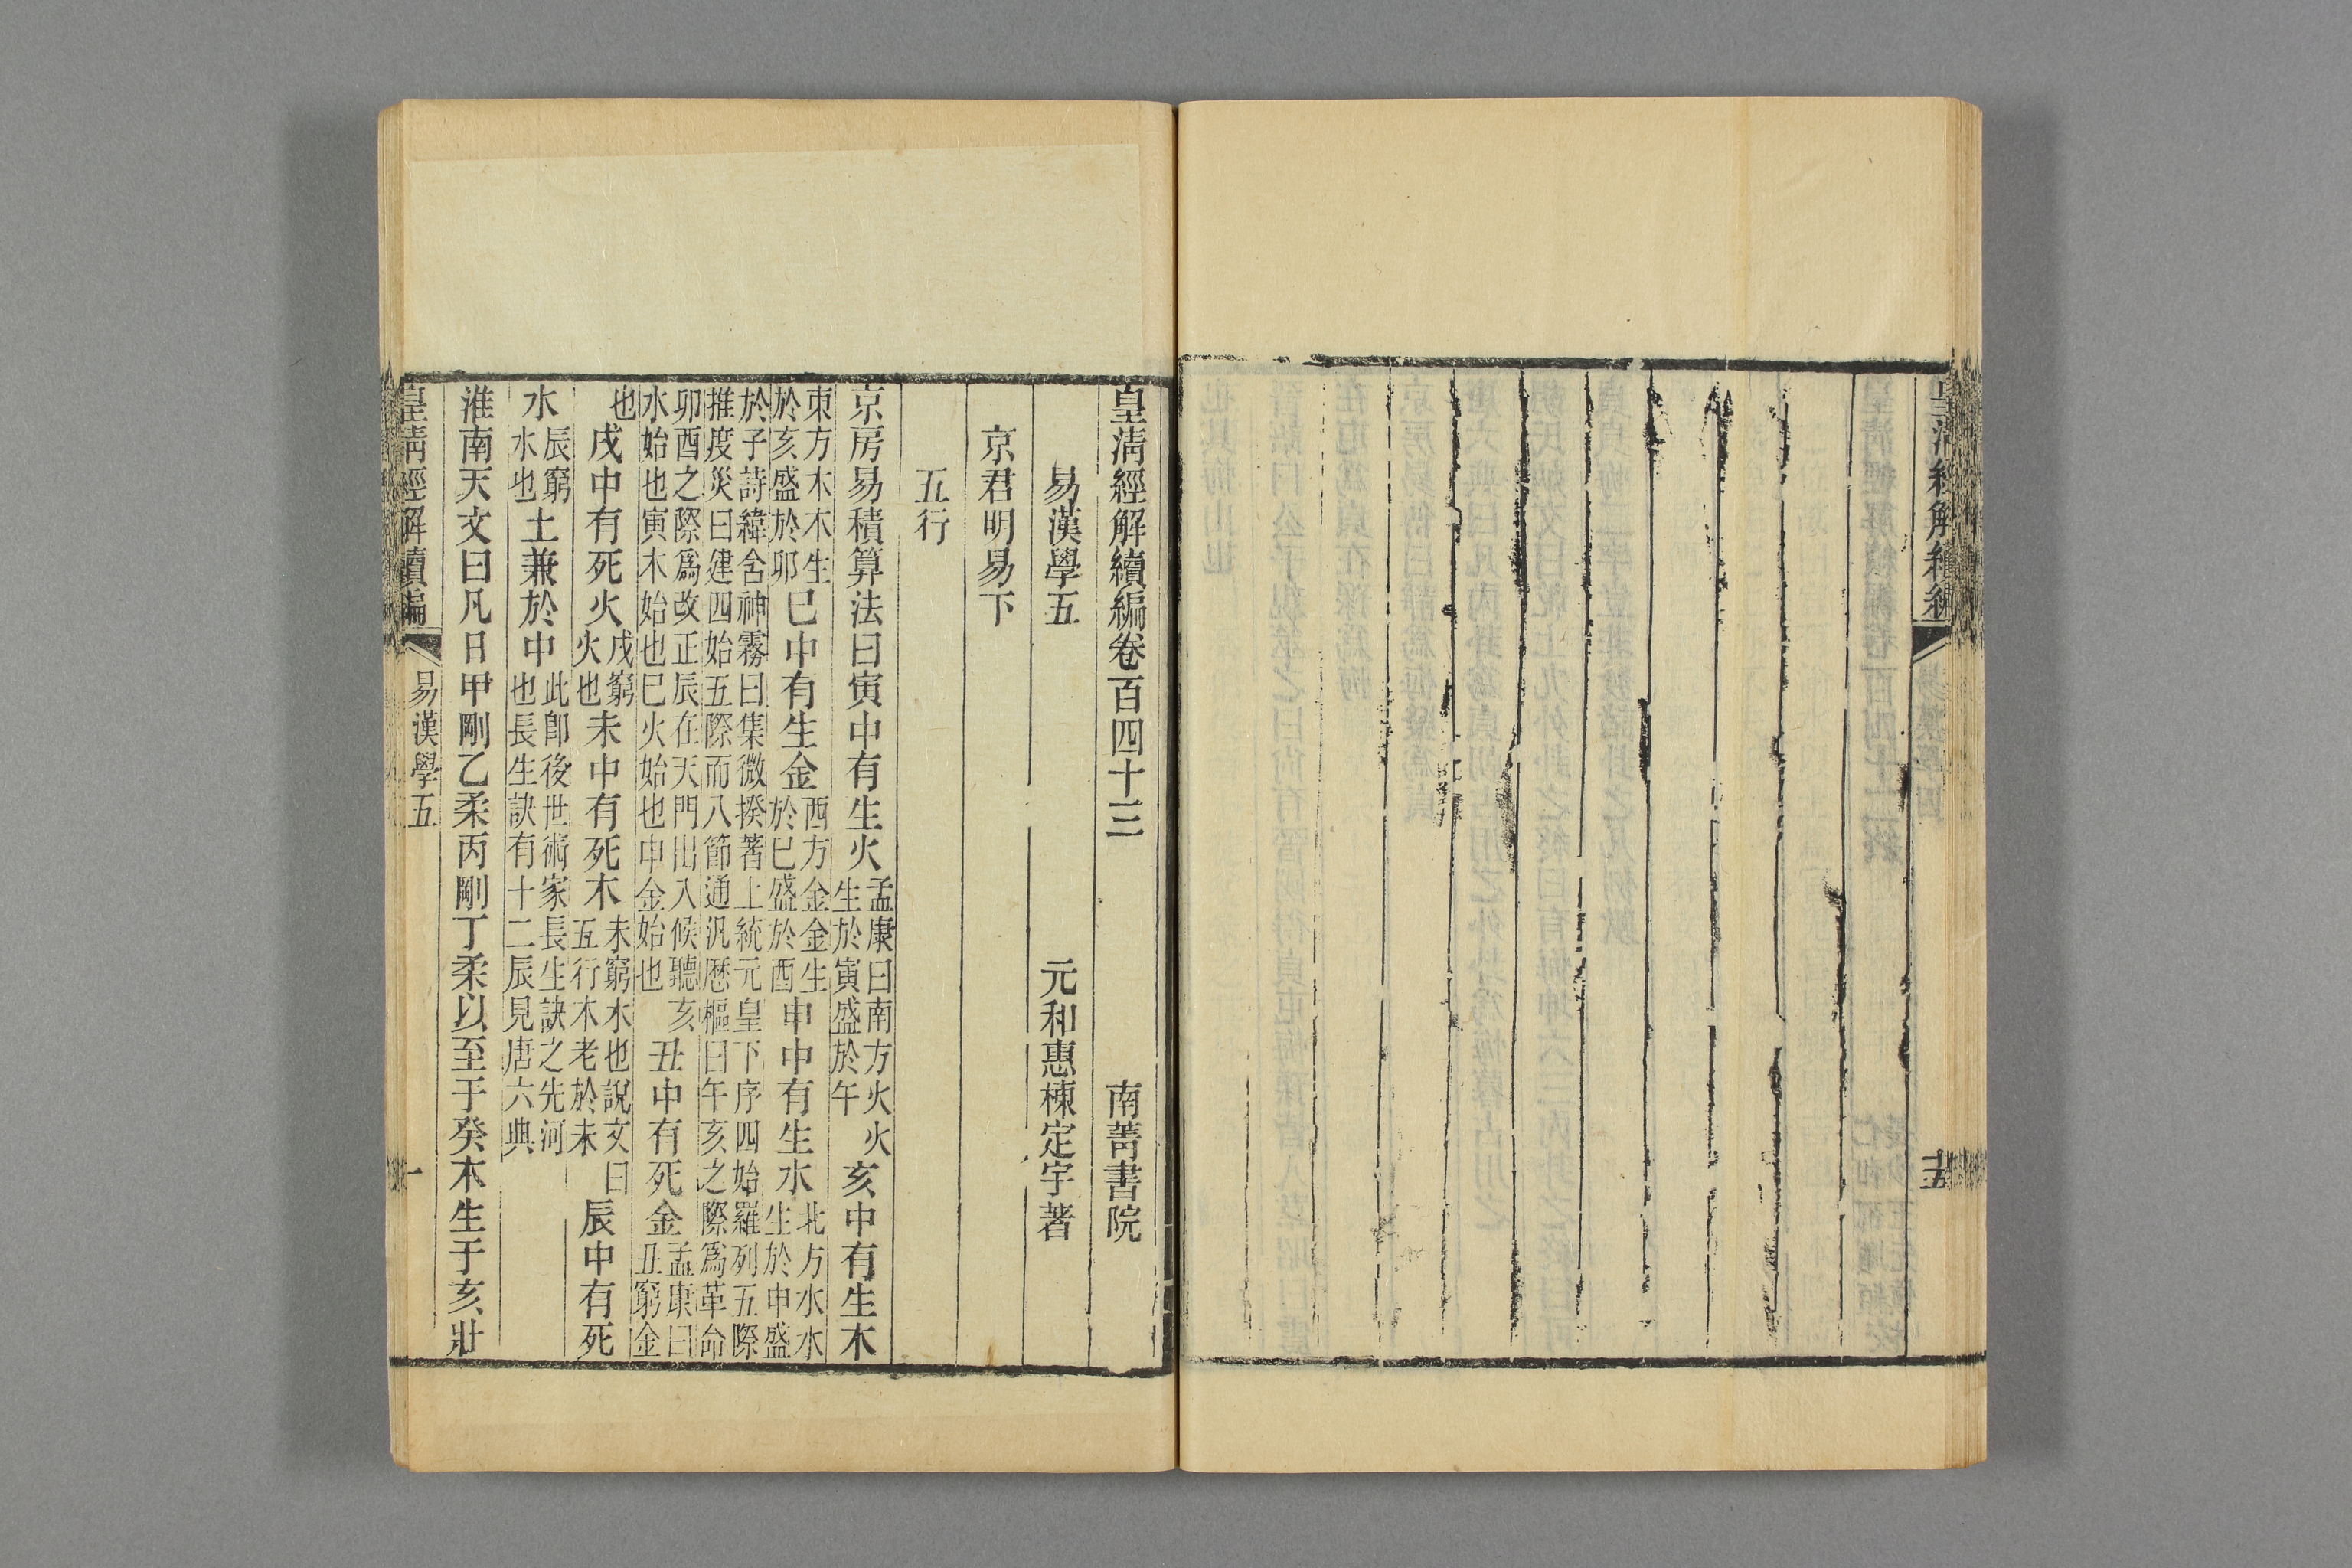 皇清經解續編
十五
皇清經解續編卷百四十三 南菁書院
易漢學五 元和惠棟定宇著
京君明易下
五行
京房易積算法曰寅中有生火孟康曰南方火火生於寅盛於午亥中有生木
東方木木生於亥盛於卯巳中有生金西方金金生於巳盛於酉申中有生水北方水水生於申盛
於子詩緯含神霧曰集微揆著上統元皇下序四始羅列五際推度災曰建四始五際而八節通汎厯樞曰午亥之際爲革命
卯酉之際爲改正辰在天門出入候聽亥水始也寅木始也巳火始也申金始也丑中有死金孟康曰丑窮金
也戌中有死火戌窮火也未中有死木未窮水也說文曰五行木老於未辰中有死
水辰窮水也土兼於中此卽後世術家長生訣之先河也長生訣有十二辰見唐六典
淮南天文曰凡日甲剛乙柔丙剛丁柔以至于癸木生于亥壯
皇清經解續編 易漢學五 一